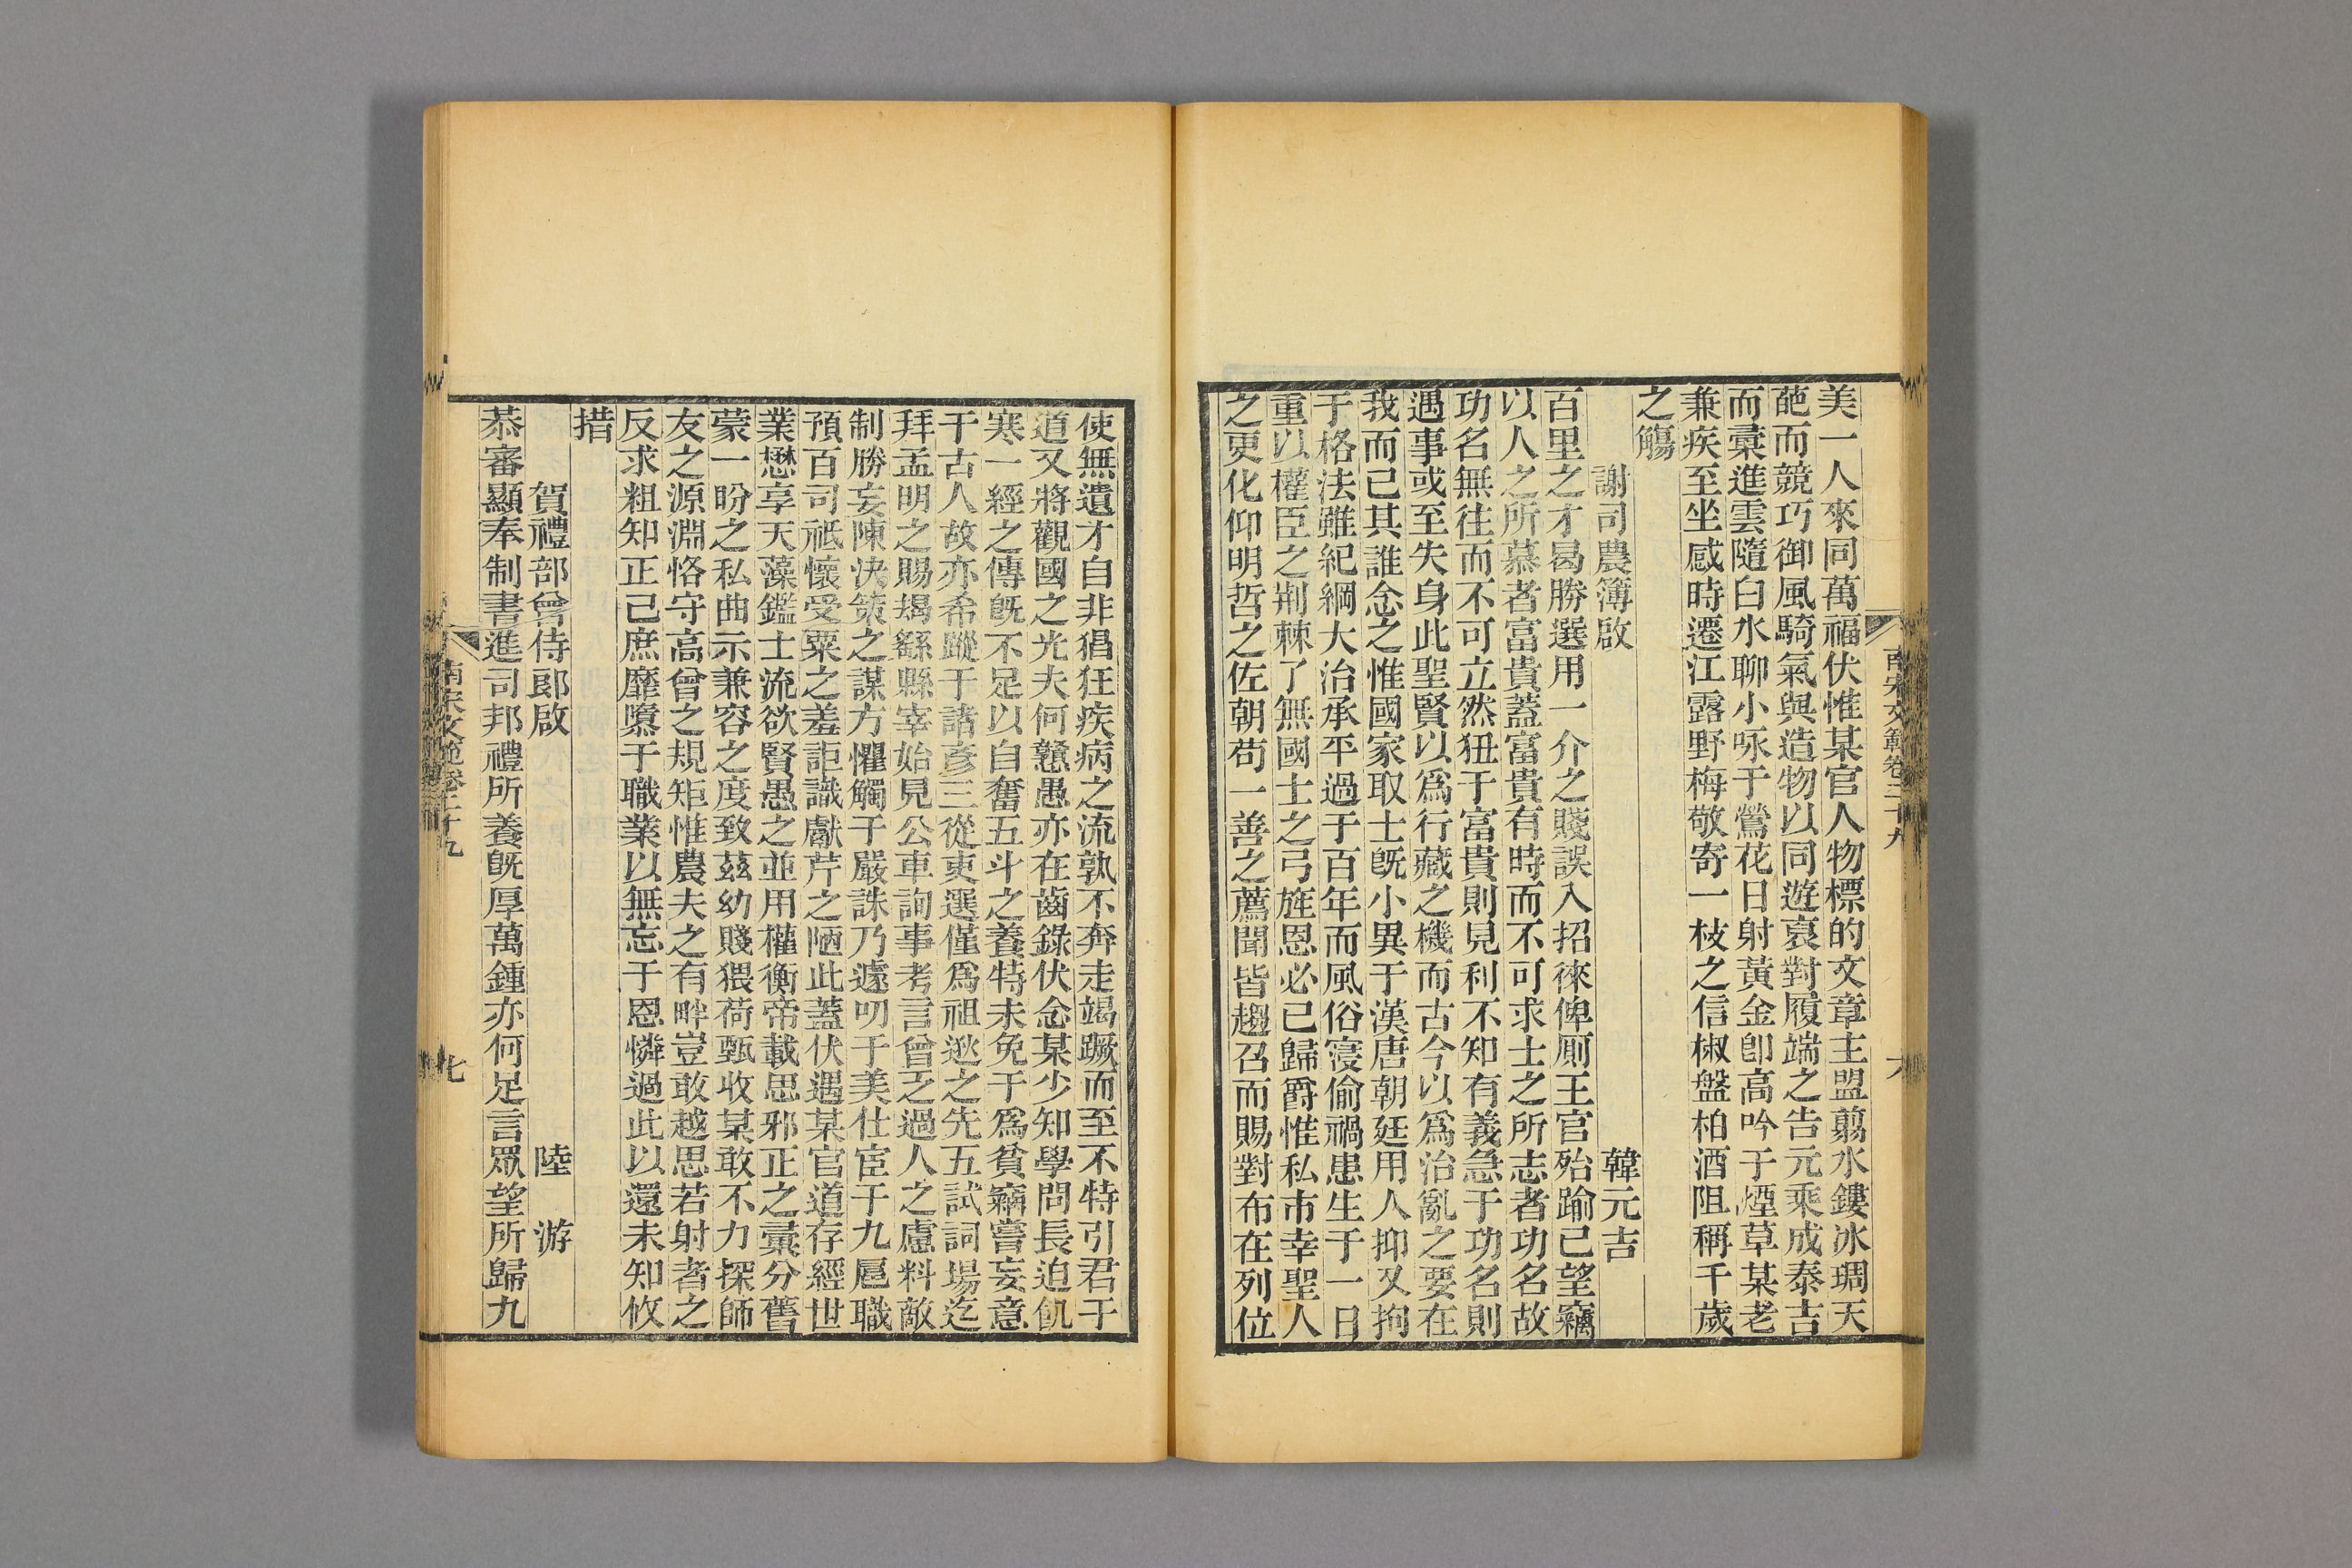 美一人來同萬福伏惟某官人物標的文章主盟翦水鏤冰琱天
葩而競巧御風騎氣與造物以同遊裒對履端之告元乘成泰吉
而彚進雲隨白水聊小咏于鶯花日射黃金卽高吟于煙草某老
兼疾至坐感時遷江露野梅敬寄一枝之信椒盤柏酒阻稱千歲
之觴
謝司農簿啟 韓元吉
百里之才曷勝選用一介之賤誤入招徠俾厠王官殆踰己望竊
以人之所慕者富貴蓋富貴有時而不可求士之所志者功名故
功名無往而不可立然狃于富貴則見利不知有義急于功名則
遇事或至失身此聖賢以爲行藏之機而古今以爲治亂之要在
我而已其誰念之惟國家取士旣小異于漢唐朝廷用人抑又拘
于格法雖紀綱大治承平過于百年而風俗寖偷禍患生于一日
重以權臣之荆棘了無國士之弓旌恩必已歸爵惟私市幸聖人
之更化仰明哲之佐朝苟一善之薦聞皆趨召而賜對布在列位
南宋文範卷三十九 六
使無遺才自非猖狂疾病之流孰不奔走竭蹶而至不特引君于
道又將觀國之光夫何戇愚亦在齒錄伏念某少知學問長迫飢
寒一經之傳旣不足以自奮五斗之養特未免于爲貧竊嘗妄意
于古人故亦希蹤于諸彥三從吏選僅爲祖逖之先五試詞場迄
拜孟明之賜竭繇縣宰始見公車詢事考言曾乏過人之慮料敵
制勝妄陳決策之謀方懼觸于嚴誅乃遽叨于美仕宦于九扈職
預百司祗懷受粟之羞詎識獻芹之陋此蓋伏遇某官道存經世
業懋享天藻鑑士流欲賢愚之並用權衡帝載思邪正之彚分舊
蒙一盼之私曲示兼容之度致茲幼賤猥荷甄收某敢不力探師
友之源淵恪守高曾之規矩惟農夫之有畔豈敢越思若射者之
反求粗知正己庶靡隳于職業以無忘于恩憐過此以還未知攸
措
賀禮部曾侍郎啟 陸游
恭審顯奉制書進司邦禮所養旣厚萬鍾亦何足言眾望所歸九
南宋文範卷三十九 七